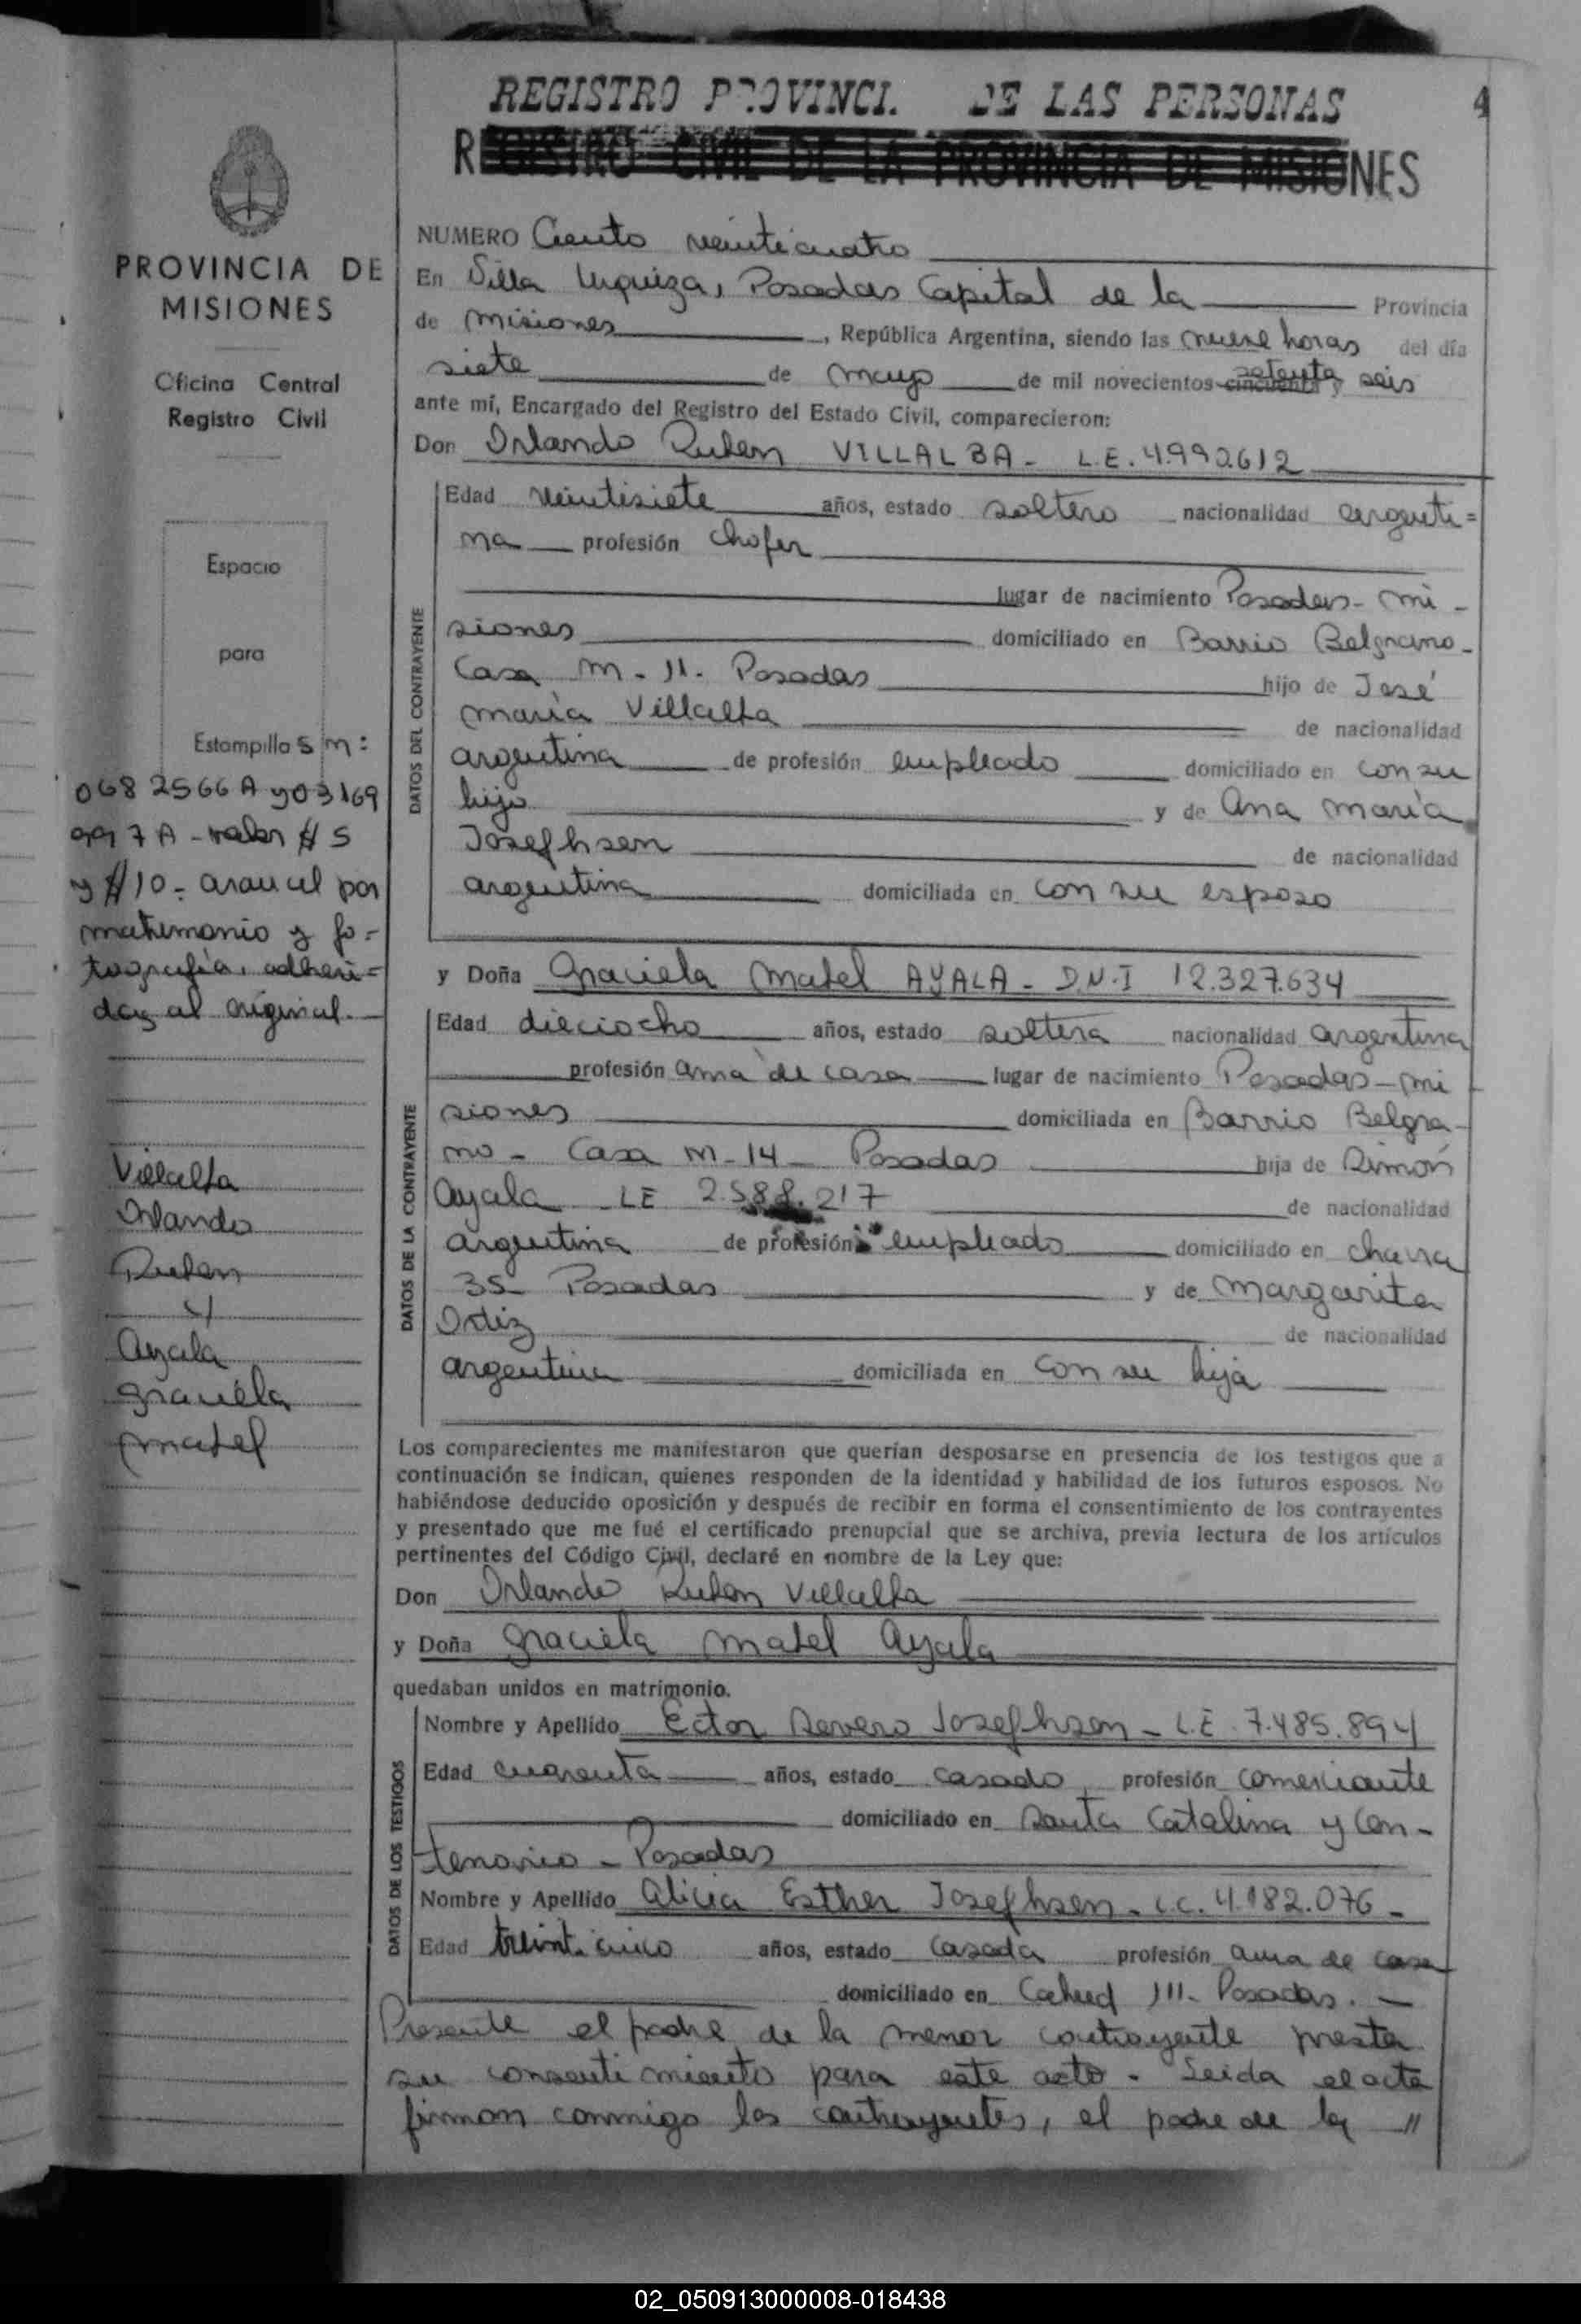 REGISTRO PROVINCI. DE LAS PERSONAS
4
REGISTRO CIVIL DE LA PROVINCIA DE MISIONES
PROVINCIA DE
MISIONES
Oficina Central
Registro Civil
Espacio
para
Estampillas m:
068 2566 A y 03169
997 A - valor $ 5
y $ 10 = arancel por
matrimonio y fo=
tografía, adheri=
das al original.
Villalba
Orlando
Ruben
y
Ayala
Graciela
Mabel
NUMERO Ciento veinticuatro
En Villa Urquiza, Posadas Capital de la Provincia
de Misiones, República Argentina, siendo las nueve horas del día
siete de Mayo de mil novecientos cincuenta setenta y seis
ante mí, Encargado del Registro del Estado Civil, comparecieron:
Don Orlando Ruben VILLALBA - L.E. 4.992.612
DATOS DEL CONTRAYENTE
Edad veintisiete años, estado soltero nacionalidad argenti=
na profesión chofer
lugar de nacimiento Posadas - Mi-
siones domiciliado en Barrio Belgrano-
Casa M-11- Posadas hijo de José
María Villalba de nacionalidad
argentina de profesión empleado domiciliado en con su
hijo y de Ana María
Josephsen de nacionalidad
argentina domiciliada en con su esposo
y Doña Graciela Mabel AYALA - D.N.I 12.327.634
DATOS DE LA CONTRAYENTE
Edad dieciocho años, estado soltera nacionalidad argentina
profesión ama de casa lugar de nacimiento Posadas - Mi
siones domiciliada en Barrio Belgra-
no - Casa M-14 - Posadas hija de Simón
Ayala LE 2.588.217 de nacionalidad
argentina de profesión empleado domiciliado en chacra
35- Posadas y de Margarita
Ortiz de nacionalidad
argentina domiciliada en con su hija
Los comparecientes me manifestaron que querían desposarse en presencia de los testigos que a
continuación se indican, quienes responden de la identidad y habilidad de los futuros esposos. No
habiéndose deducido oposición y después de recibir en forma el consentimiento de los contrayentes
y presentado que me fué el certificado prenupcial que se archiva, previa lectura de los artículos
pertinentes del Código Civil, declaré en nombre de la Ley que:
Don Orlando Ruben Villalba
y Doña Graciela Mabel Ayala
quedaban unidos en matrimonio.
DATOS DE LOS TESTIGOS
Nombre y Apellido Ector Severo Josephsen - L.E. 7.485.894
Edad cuarenta años, estado casado profesión comerciante
domiciliado en Santa Catalina y Cen-
tenario - Posadas
Nombre y Apellido Alicia Esther Josephsen - L.C. 4.182.076 -
Edad treinticinco años, estado Casada profesión ama de casa
domiciliado en 111- Posadas. -
Presente el padre de la menor contrayente presta
su consentimiento para este acto - Leida el acta
firman conmigo los contrayentes, el padre de la "
02_050913000008-018438